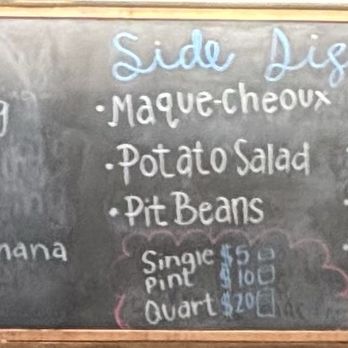 Side Dis
• Maque-cheoux
• Potato Salad
• Pit Beans
Single $5
Pint $10
Quart $20